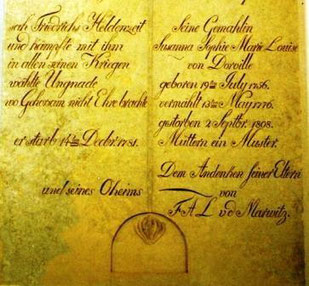 sah Friedrichs Heldenzeit
und kämpfte mit ihm
in allen seinen Kriegen
wählte Ungnade
wo Gehorsam nicht Ehre brachte
er starb 14ten Decbr. 1781.
und seines Oheims
Seine Gemahlin
Susanna Sophie Marie Louise
von Dorville
geboren 19ten July 1756.
vermählt 13ten May 1776.
gestorben 2 Septbr. 1808.
Müttern ein Muster.
Dem Andenken seiner Eltern
von
F A L v d Marwitz.